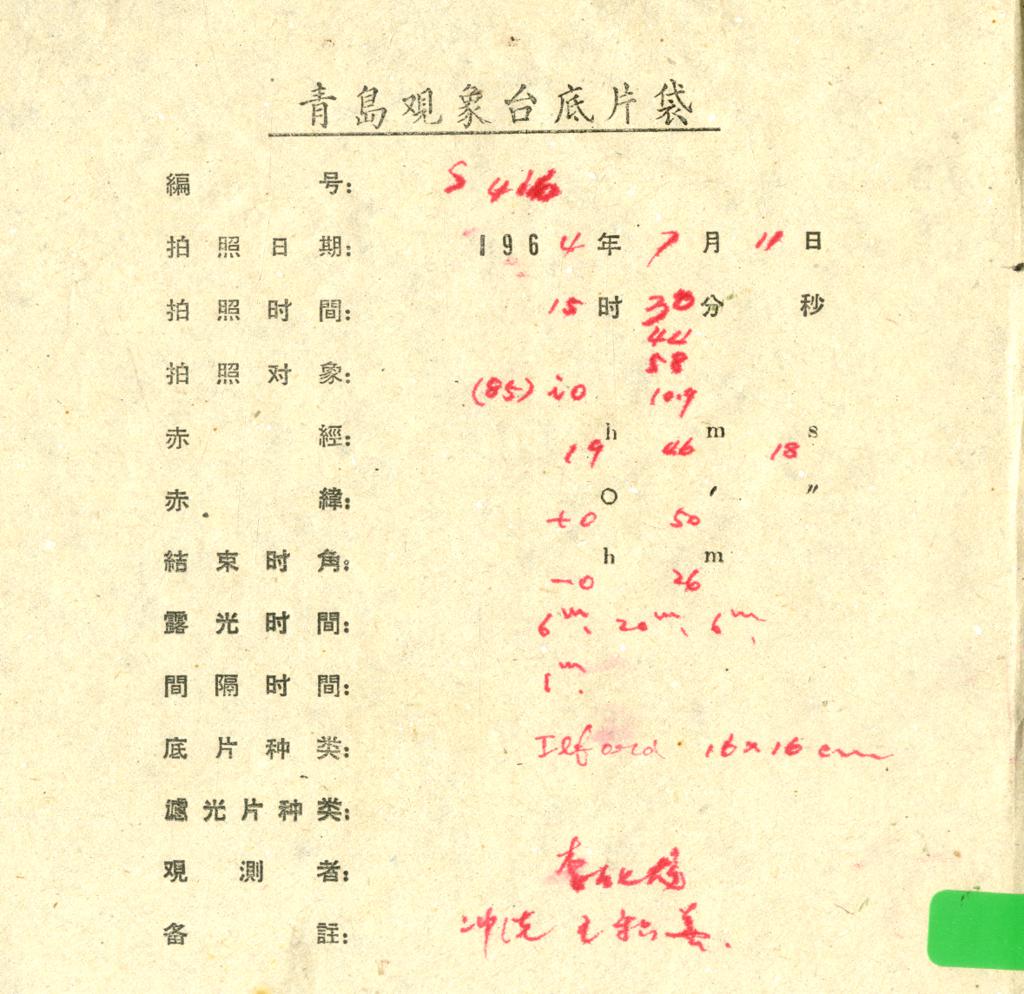 青島观象台底片袋
編号: S 416
拍照日期: 1964年7月11日
拍照时間: 15时30分 秒
44
58
拍照对象: (85) io 10.9
赤經: 19h 46m 18s
赤緯: +0° 50′ ″
結束时角: -0h 26m
露光时間: 6m. 20m. 6m.
間隔时間: 1m.
底片种类: Ilford 16x16 cm
濾光片种类:
观測者: 李
备註: 冲洗 王